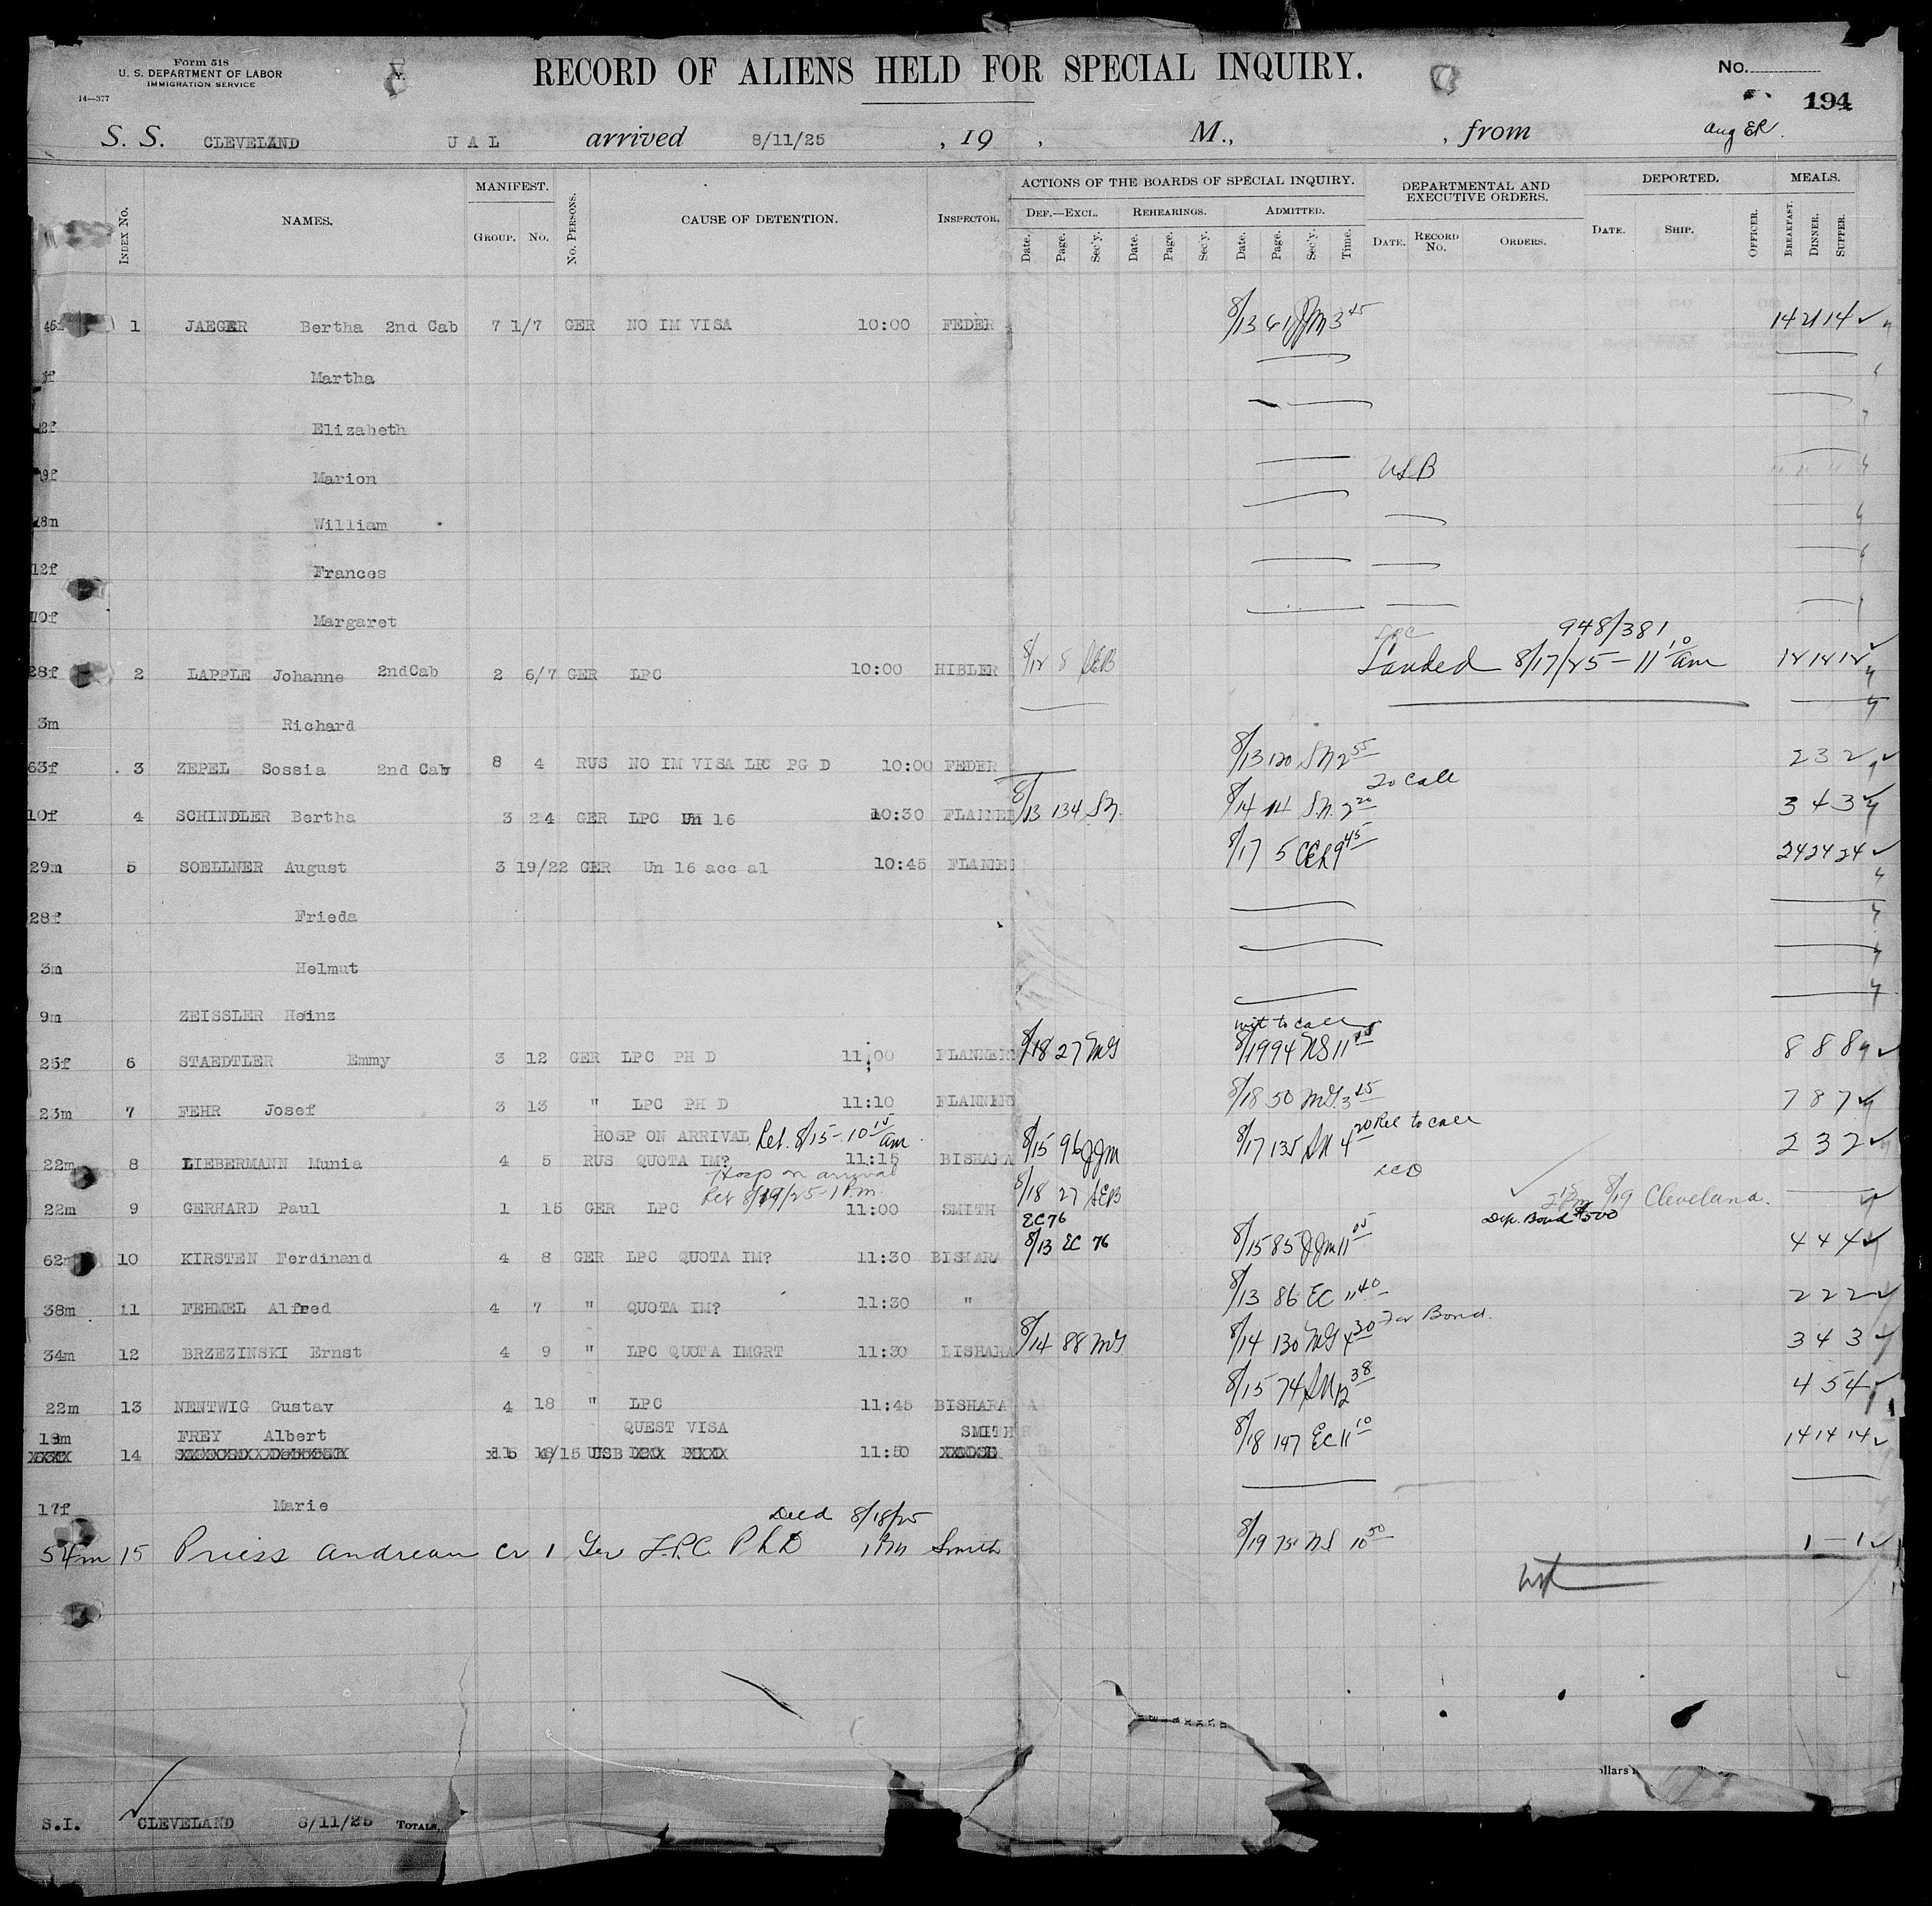 Form 518
U. S. DEPARTMENT OF LABOR
IMMIGRATION SERVICE
14—377
RECORD OF ALIENS HELD FOR SPECIAL INQUIRY.
No.
194
S. S. CLEVELAND U A L arrived 8/11/25 , 19 , M., , from Aug ER.
INDEX No. NAMES. MANIFEST. GROUP. No. No. PERSONS. CAUSE OF DETENTION. INSPECTOR.
ACTIONS OF THE BOARDS OF SPECIAL INQUIRY. DEPARTMENTAL AND EXECUTIVE ORDERS. DEPORTED. MEALS.
DEF.—EXCL. REHEARINGS. ADMITTED.
Date. Page. Sec'y. Date. Page. Sec'y. Date. Page. Sec'y. Time. DATE. RECORD No. ORDERS. DATE. SHIP. OFFICER. BREAKFAST. DINNER. SUPPER.
1 JAEGER Bertha 2nd Cab 7 1/7 GER NO IM VISA 10:00 FEDER 8/13 61 JJM 3 45 14 21 14
Martha
Elizabeth
Marion USB
William
12f Frances
10f Margaret
948/381
28f 2 LAPPLE Johanne 2ndCab 2 6/7 GER LPC 10:00 HIBLER 8/12 8 SEB Landed 8/17/25 - 11 10 am
3m Richard
63f 3 ZEPEL Sossia 2nd Cab 8 4 RUS NO IM VISA LPC PG D 10:00 FEDER 8/13 120 SN 2 55 2 3 2
To Call
10f 4 SCHINDLER Bertha 3 24 GER LPC Un 16 10:30 FLANNE 8/13 134 SN. 8/14 14 S.N. 2 20 3 4 3
29m 5 SOELLNER August 3 19/22 GER Un 16 acc al 10:45 FLANNE 8/17 5 CER 9 45 24 24 24
28f Frieda
3m Helmut
9m ZEISSLER Heinz
wit to call
25f 6 STAEDTLER Emmy 3 12 GER LPC PH D 11:00 FLANNERY 8/18 27 MG 8/19 94 NS 11 8 8 8
23m 7 FEHR Josef 3 13 " LPC PH D 11:10 FLANNERY 8/18 50 MG. 3 7 8 7
HOSP ON ARRIVAL Rel. 8/15 - 10 15 am. Rel to call
22m 8 LIEBERMANN Munia 4 5 RUS QUOTA IM? 11:15 BISHARA 8/15 96 JJM 8/17 135 SN 4 20 2 3 2
Hosp on arrival
Rel 8/19/25 - 1 P.m.
22m 9 GERHARD Paul 1 15 GER LPC 11:00 SMITH 8/18 27 SEB 8/19 Cleveland.
EC 76 Dep. Bond $500
62m 10 KIRSTEN Ferdinand 4 8 GER LPC QUOTA IM? 11:30 BISHARA 8/13 EC 76 8/15 85 JJM 11 05 4 4 4
38m 11 FEHMEL Alfred 4 7 " QUOTA IM? 11:30 " 8/13 86 EC 11 40 2 2 2
For Bond.
34m 12 BRZEZINSKI Ernst 4 9 " LPC QUOTA IMGRT 11:30 BISHARA 8/14 88 MG 8/14 130 MG 4 30 3 4 3
22m 13 NENTWIG Gustav 4 18 " LPC 11:45 BISHARA 8/15 74 SN 12 38 4 5 4
FREY Albert QUEST VISA SMITH
14 15 USB 11:50 8/18 147 EC 11 10 14 14 14
17f Marie
Decd 8/18/25
54m 15 Priess Andreau Cr 1 Ger L.P.C. PhD 1 Pm Smith 8/19 NS 10 50 1 — 1
S.I. CLEVELAND 8/11/25 TOTALS,